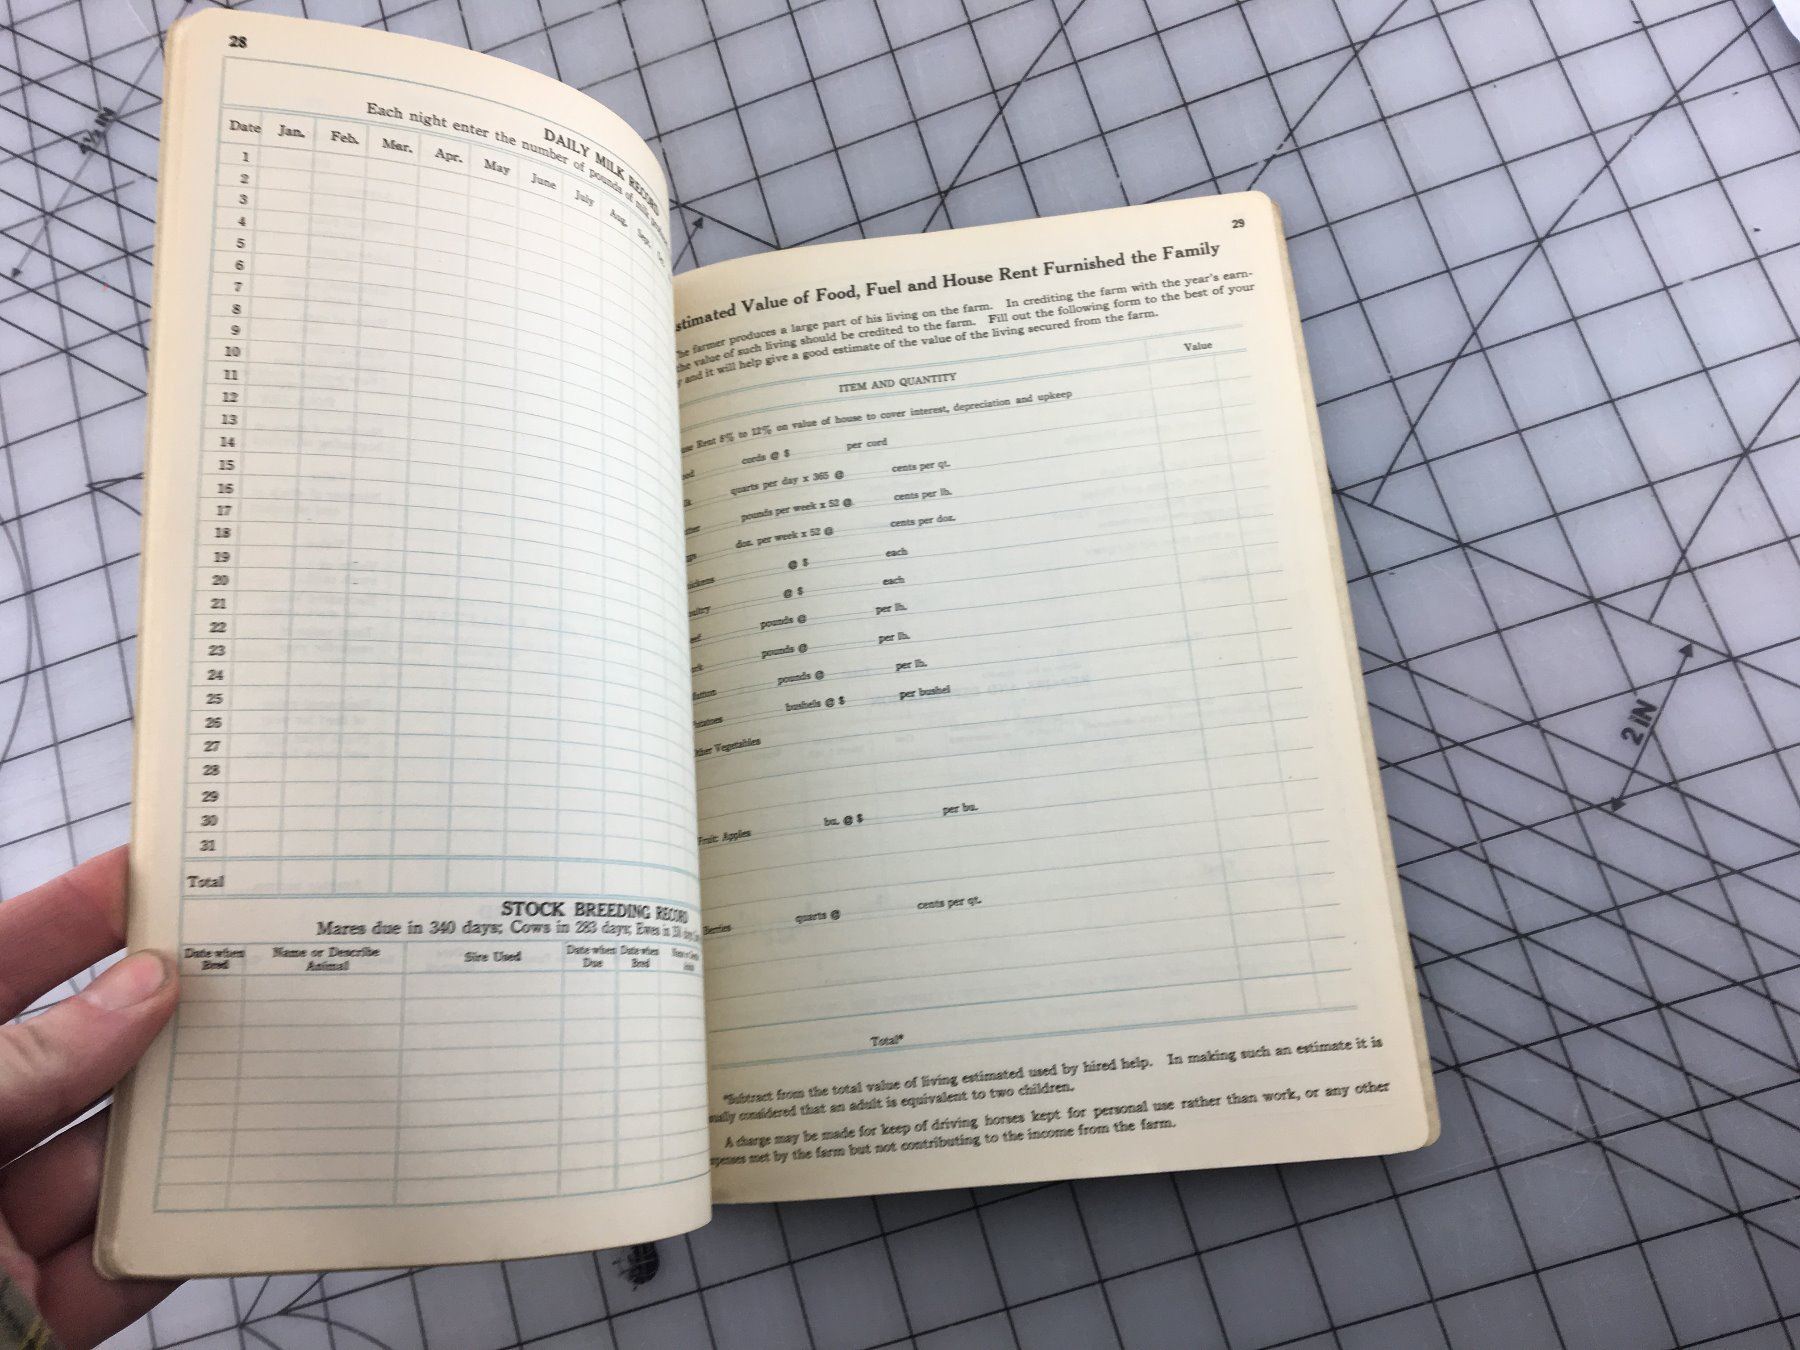 28
DAILY MILK RECORD
Each night enter the number of pounds of milk
Date Jan. Feb. Mar. Apr. May June July Aug. Sept.
1
2
3
4
5
6
7
8
9
10
11
12
13
14
15
16
17
18
19
20
21
22
23
24
25
26
27
28
29
30
31
Total
STOCK BREEDING RECORD
Mares due in 340 days; Cows in 283 days; Ewes in
Date when Bred Name or Describe Animal Sire Used Date when Due Date when Bred
29
stimated Value of Food, Fuel and House Rent Furnished the Family
he farmer produces a large part of his living on the farm. In crediting the farm with the year's earn-
the value of such living should be credited to the farm. Fill out the following form to the best of your
y and it will help give a good estimate of the value of the living secured from the farm.
ITEM AND QUANTITY Value
use Rent 8% to 12% on value of house to cover interest, depreciation and upkeep
cords @ $ per cord
quarts per day x 365 @ cents per qt.
pounds per week x 52 @ cents per lb.
doz. per week x 52 @ cents per doz.
ickens @ $ each
ultry @ $ each
pounds @ per lb.
pounds @ per lb.
utton pounds @ per lb.
otatoes bushels @ $ per bushel
ther Vegetables
Fruit: Apples bu. @ $ per bu.
Berries quarts @ cents per qt.
Total*
*Subtract from the total value of living estimated used by hired help. In making such an estimate it is
ually considered that an adult is equivalent to two children.
A charge may be made for keep of driving horses kept for personal use rather than work, or any other
penses met by the farm but not contributing to the income from the farm.
2 IN